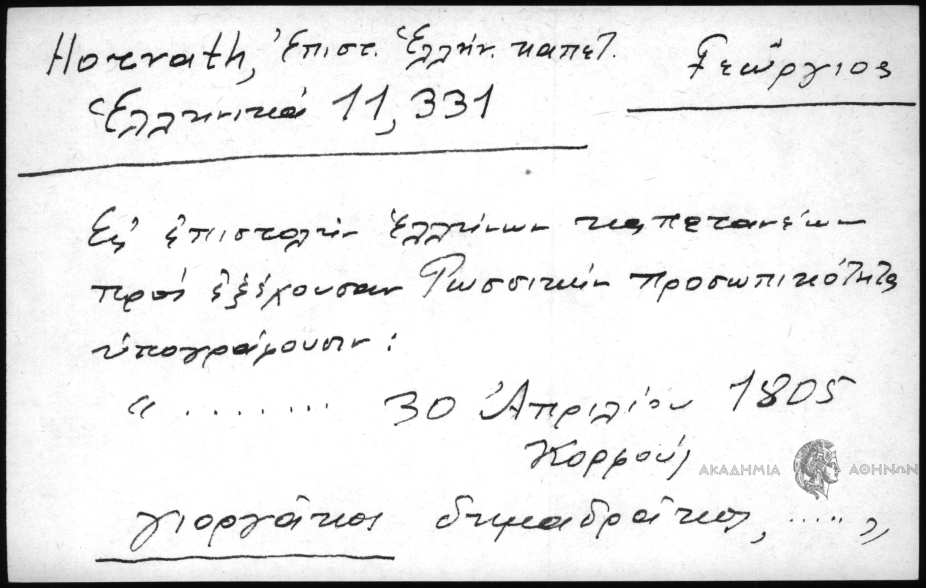 Horvath, Ἐπιστ. Ἑλλήν. καπετ. Γεώργιος
Ἑλληνικά 11, 331
Εἰς ἐπιστολήν Ἑλλήνων καπετανέων
πρός ἐξέχουσαν Ρωσσικήν προσωπικότητα
ὑπογράφουσιν:
« ........ 30 Ἀπριλίου 1805
Κορφούς
γιοργάκις δημαδράκις, ..... »
ΑΚΑΔΗΜΙΑ ΑΘΗΝΩΝ